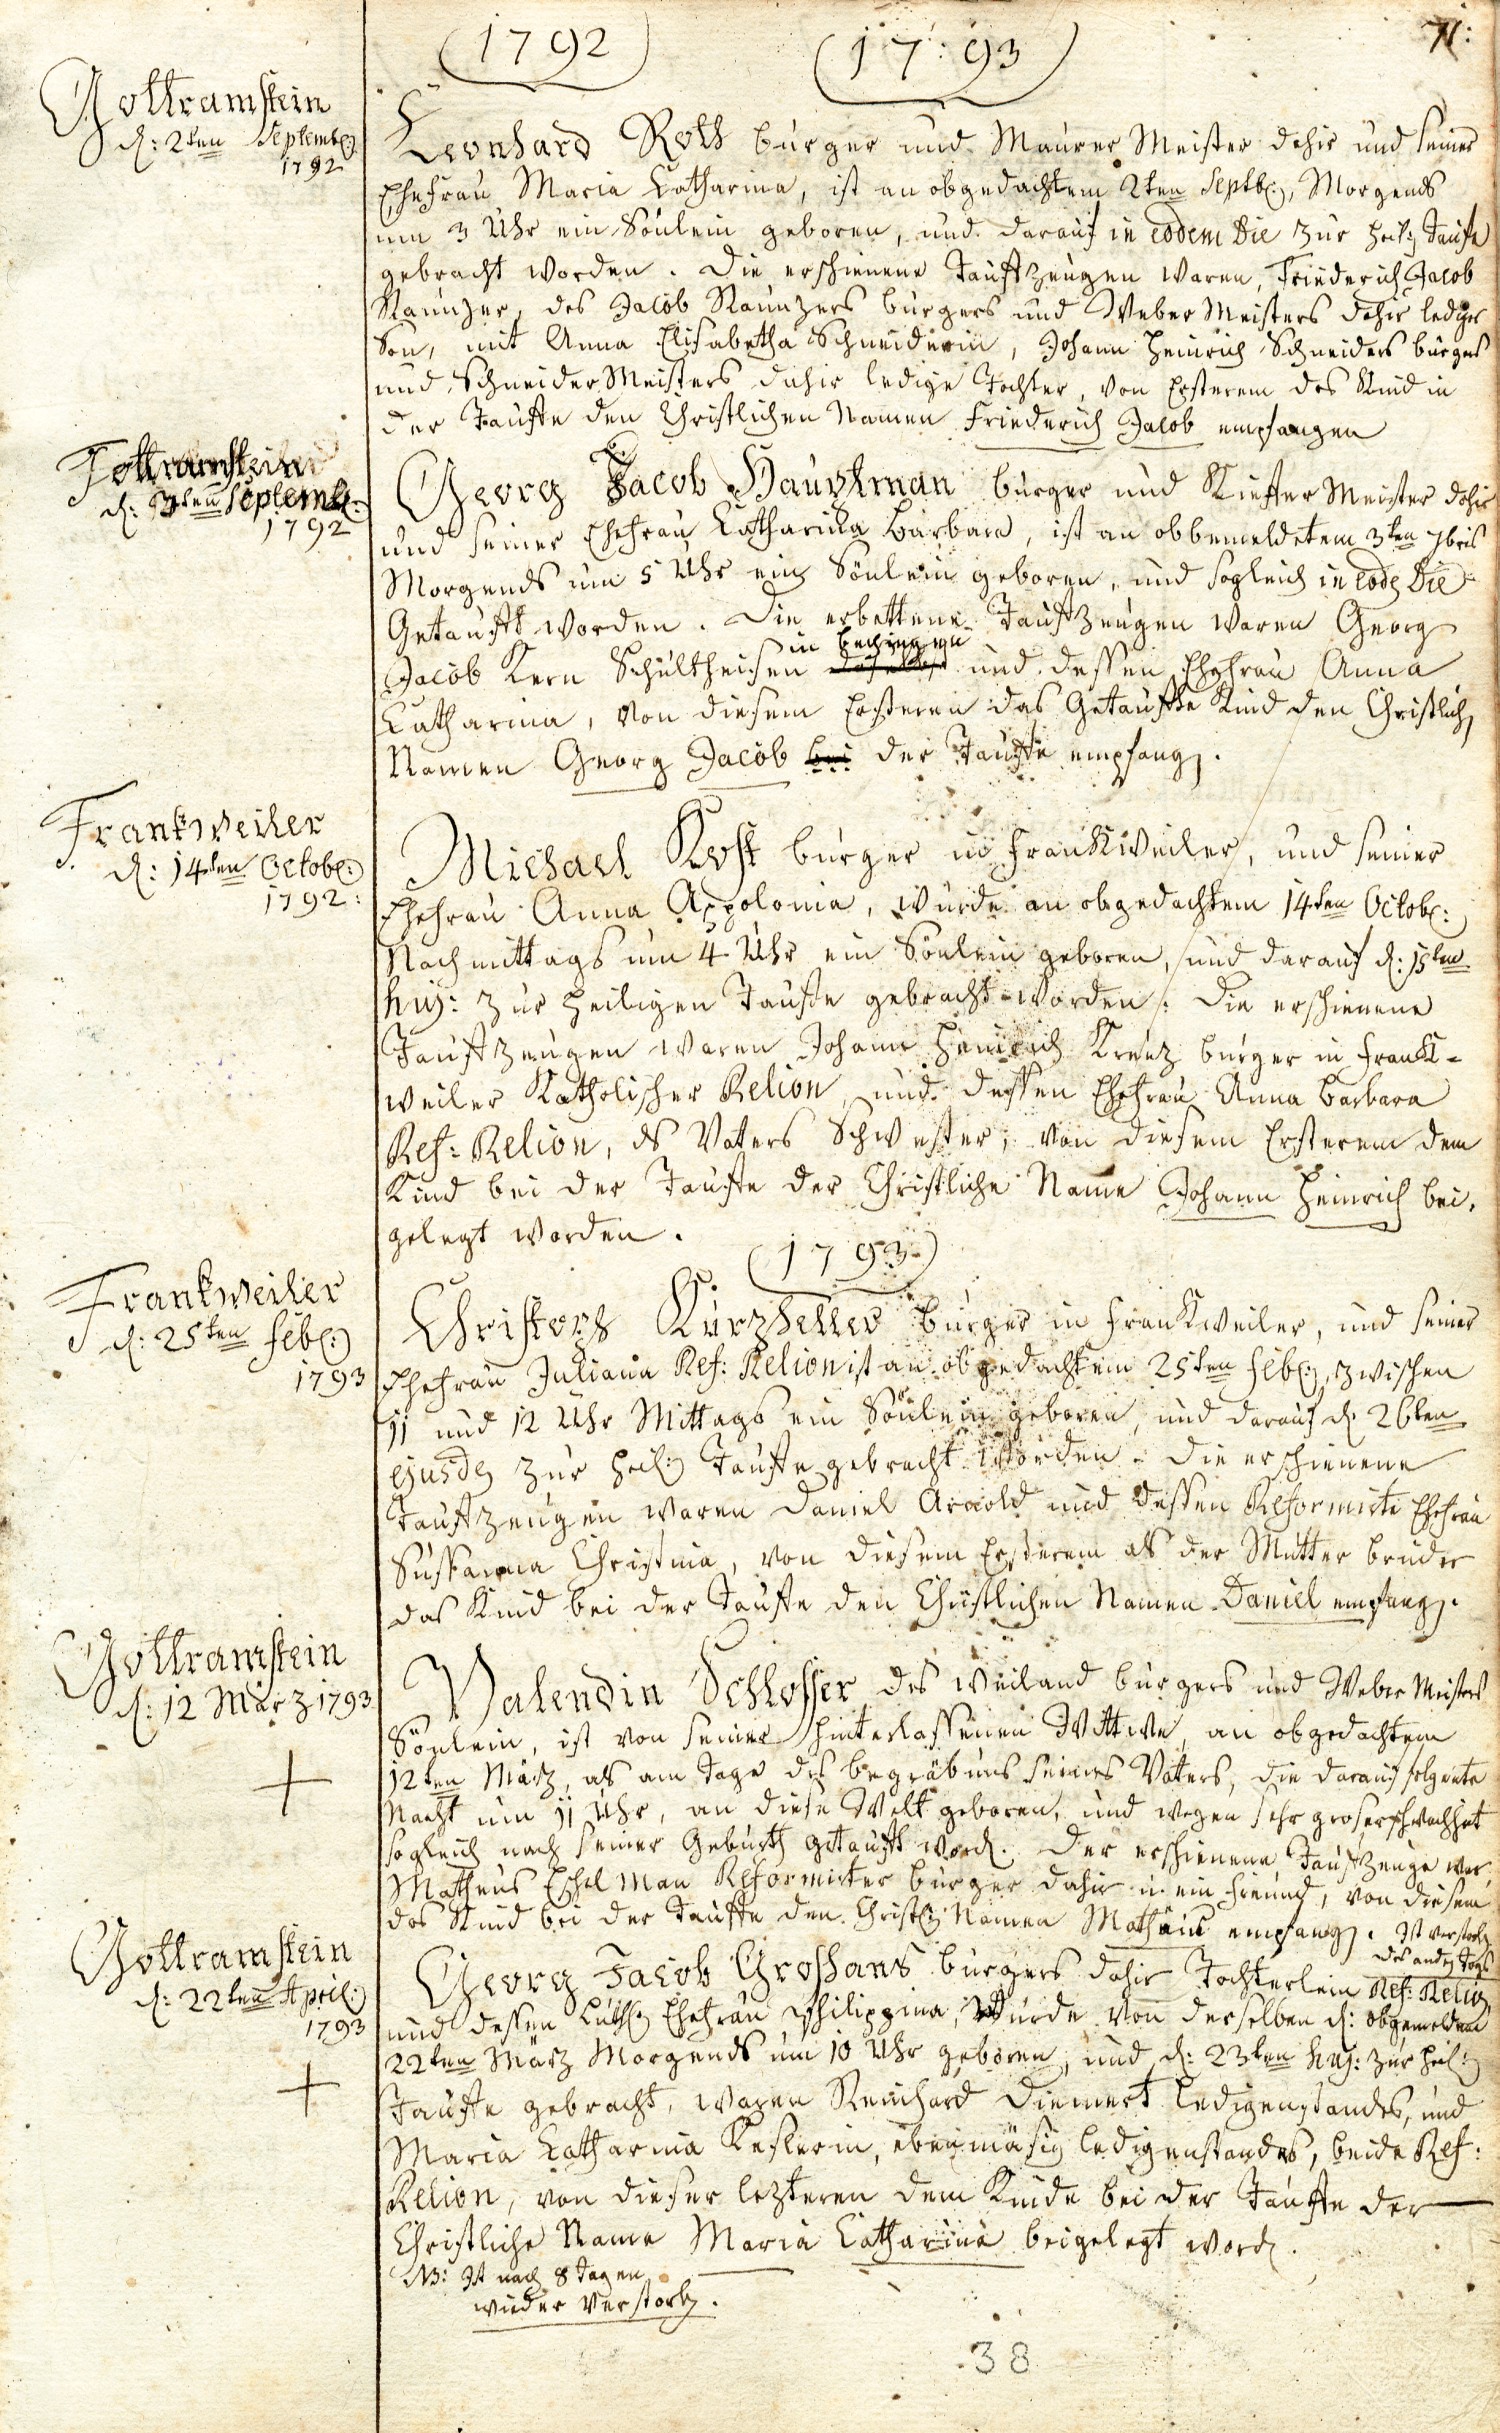 1792
17:93
71:
Gottramstein
d: 2ten Septemb:
1792
Leonhard Roth burger und Maurer Meister dahir und seiner
Ehefrau Maria Catharina, ist an obgedachtem 2ten Septb:, Morgends
um 3 Uhr ein Sönlein geboren, und darauf in eodem Die zur heil: Taufe
gebracht worden. Die erschienene Taufzeugen waren, Friederich Jacob
Naunzer, des Jacob Naunzers burgers und Weber Meisters dahir lediger
Son, mit Anna Elisabetha Schneiderin, Johann Heinrich Schneiders burgers
und Schneider Meisters dahir ledige Tochter, von Ersterem das Kind in
der Tauffe den Christlichen Namen Friederich Jacob empfangen
Gottramstein
d: 3ten Septemb:
1792
Georg Jacob Hauckman burger und Kieffer Meister dahir
und seiner Ehefrau Catharina Barbara, ist an obbemeldetem 3ten 7bris
Morgends um 5 Uhr ein Sönlein geboren, und sogleich in eod: Die
Getaufft worden. Die erbettene Taufzeugen waren Georg
in Bechingen
Jacob Kern Schultheisen daselbst und dessen Ehefrau Anna
Catharina, von diesem Ersteren das Getauffte Kind den Christlich:
Namen Georg Jacob bei der Tauffe empfang:.
Frankweiler
d: 14ten Octob:
1792:
Michael Kost burger in Frankweiler, und seiner
Ehefrau Anna Appolonia, wurde an obgedachtem 14ten Octob:
Nachmittags um 4 Uhr ein Sönlein geboren, und darauf d: 15ten
huj: zur heiligen Tauffe gebracht worden. Die erschienene
Taufzeugen waren Johann Heinrich Kreuz burger in Frank-
weiler Katholischer Relion, und dessen Ehefrau Anna Barbara
Ref: Relion, ds Vaters Schwester, von diesem Ersterem dem
Kind bei der Tauffe der Christliche Name Johann Heinrich bei,
gelegt worden.
1793
Frankweiler
d: 25ten feb:
1793
Christoph Kurzheller burger in Frankweiler, und seiner
Ehefrau Juliana Ref: Relion ist an obgedachtem 25ten feb:, zwischen
11 und 12 Uhr Mittags ein Sönlein geboren, und darauf d: 26ten
ejusd: zur heil: Tauffe gebracht worden. Die erschienene
Taufzeugen waren Daniel Arnold und dessen Reformirte Ehefrau
Sussanna Christina, von diesem Ersterem als der Mutter bruder
das Kind bei der Tauffe den Christlichen Namen Daniel empfang:.
Gottramstein
d: 12 März 1793
Valendin Schlosser des weiland burgers und Weber Meisters
Sönlein, ist von seiner hinterlassenen Wittwe, an obgedachtem
12ten März, als am Tage des begräbnus seines Vaters, die darauf folgente
Nacht um 11 Uhr, an diese Welt geboren, und wegen sehr groser schwachheit
sogleich nach seiner Geburth getaufft word:. Der erschienene Taufzeuge war
Matheus Eschelman Reformirter burger dahir u: ein freund, von diesem
das Kind bei der Tauffe den Christl: Namen Mathäus empfang:. Ist verstorb:
des and: Tags
Gottramstein
d: 22ten April:
1793
Georg Jacob Groshans burgers dahir Töchterlein Ref: Relig:
und dessen Luth: Ehefrau Philippina, wurde von derselben d: obgemelden
22ten März Morgends um 10 Uhr geboren, und d: 23ten huj: zur heil:
Tauffe gebracht, waren Reinhard Diemert ledigenstandes, und
Maria Catharina Keslerin, ebenmäsig ledigenstandes, beide Ref:
Relion, von dieser lezteren dem Kinde bei der Tauffe der
Christliche Name Maria Catharina beigelegt word:.
NB: Ist nach 8 Tagen
wieder verstorb:.
38